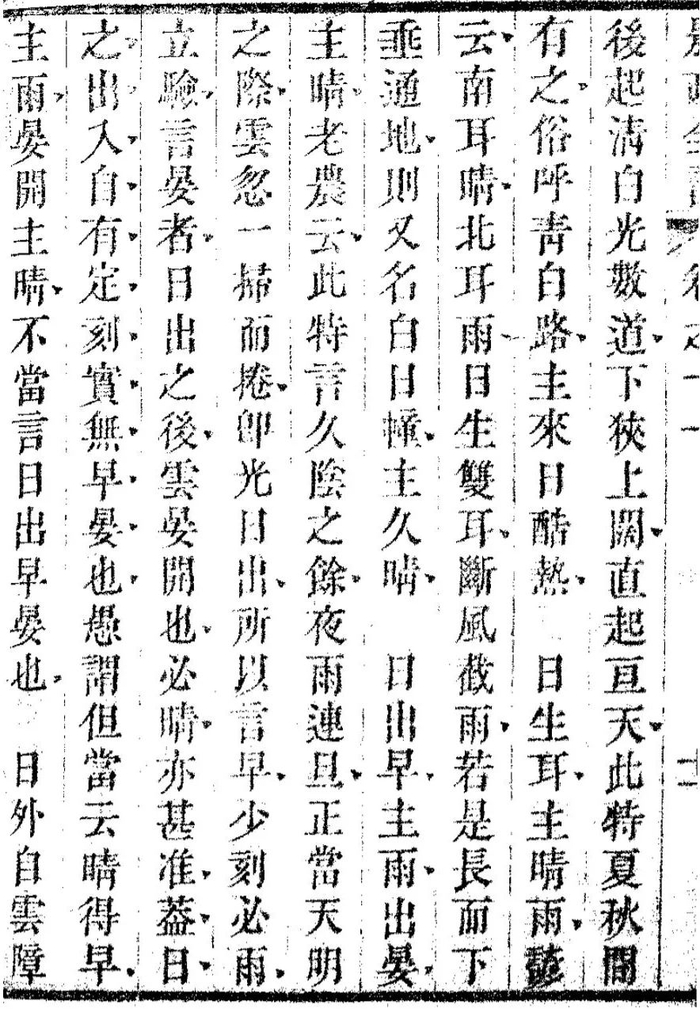 後起淸白光數道下狹上闊直起亘天此特夏秋間
有之俗呼靑白路主來日酷熱　日生耳主晴雨諺
云南耳晴北耳雨日生雙耳斷風截雨若是長而下
垂通地則又名白日幢主久晴　日出早主雨出晏
主晴老農云此特言久陰之餘夜雨連旦正當天明
之際雲忽一掃而捲卽光日出所以言早少刻必雨
立驗言晏者日出之後雲晏開也必晴亦甚准葢日
之出入自有定刻實無早晏也愚謂但當云晴得早
主雨晏開主晴不當言日出早晏也　日外自雲障